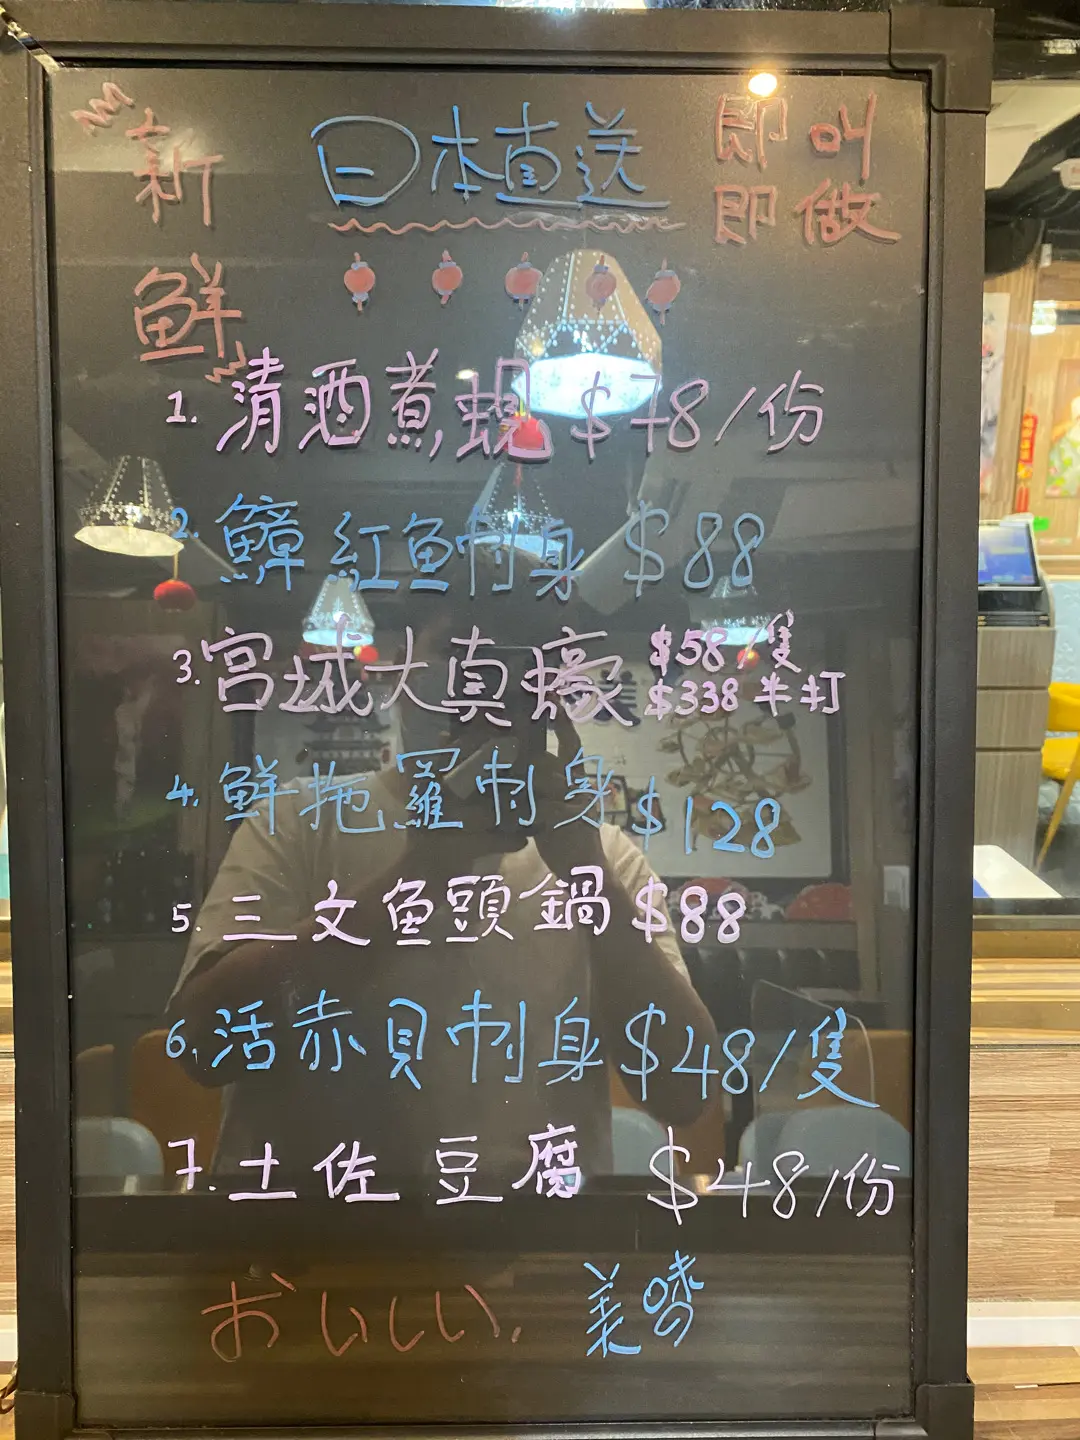 新鮮
日本直送
即叫
即做
1. 清酒煮蜆 $78/份
2. 鱆紅魚刺身 $88
3. 宮城大真蠔 $58/隻
$338 半打
4. 鮮拖羅刺身 $128
5. 三文魚頭鍋 $88
6. 活赤貝刺身 $48/隻
7. 土佐豆腐 $48/份
おいしい. 美